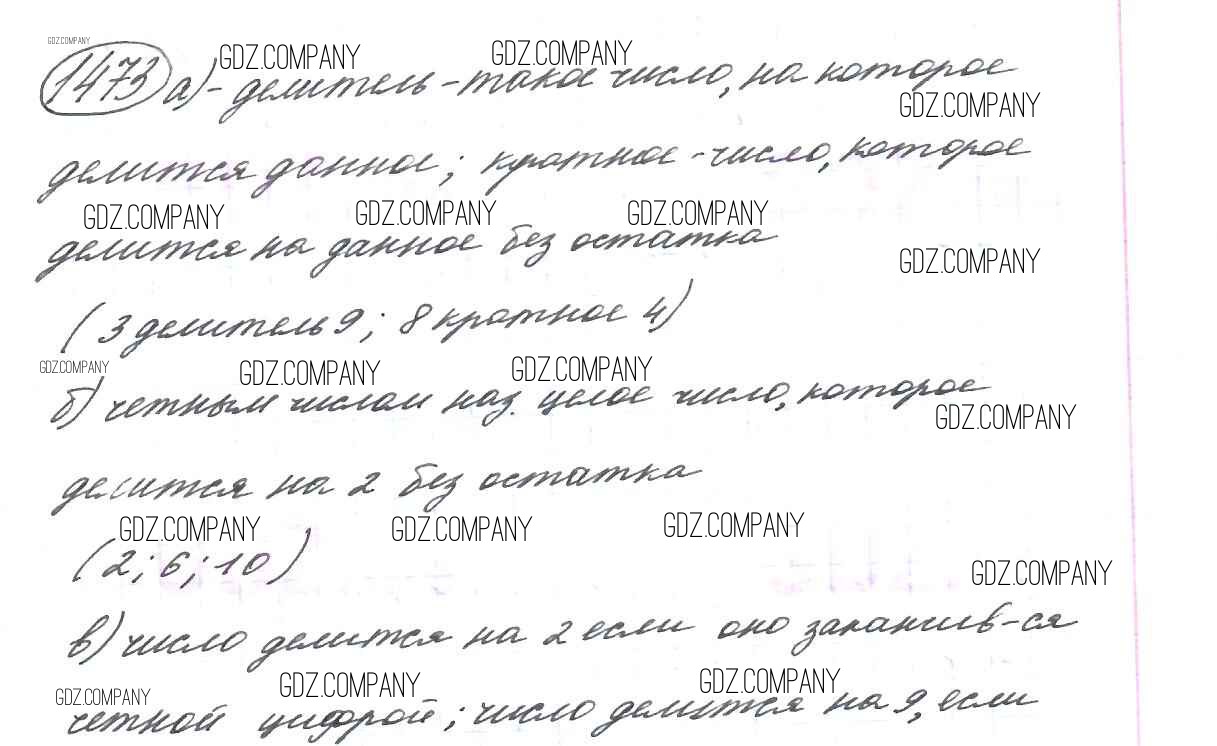 GDZ.COMPANY
1473 а)- делитель - такое число, на которое
GDZ.COMPANY GDZ.COMPANY
GDZ.COMPANY
делится данное; кратное - число, которое
GDZ.COMPANY GDZ.COMPANY GDZ.COMPANY
делится на данное без остатка
GDZ.COMPANY
(3 делитель 9; 8 кратное 4)
GDZ.COMPANY GDZ.COMPANY GDZ.COMPANY
б) четным числом наз. целое число, которое
GDZ.COMPANY
делится на 2 без остатка
GDZ.COMPANY GDZ.COMPANY GDZ.COMPANY
(2; 6; 10)
GDZ.COMPANY
в) число делится на 2 если оно заканчив-ся
GDZ.COMPANY GDZ.COMPANY GDZ.COMPANY
четной цифрой; число делится на 9, если